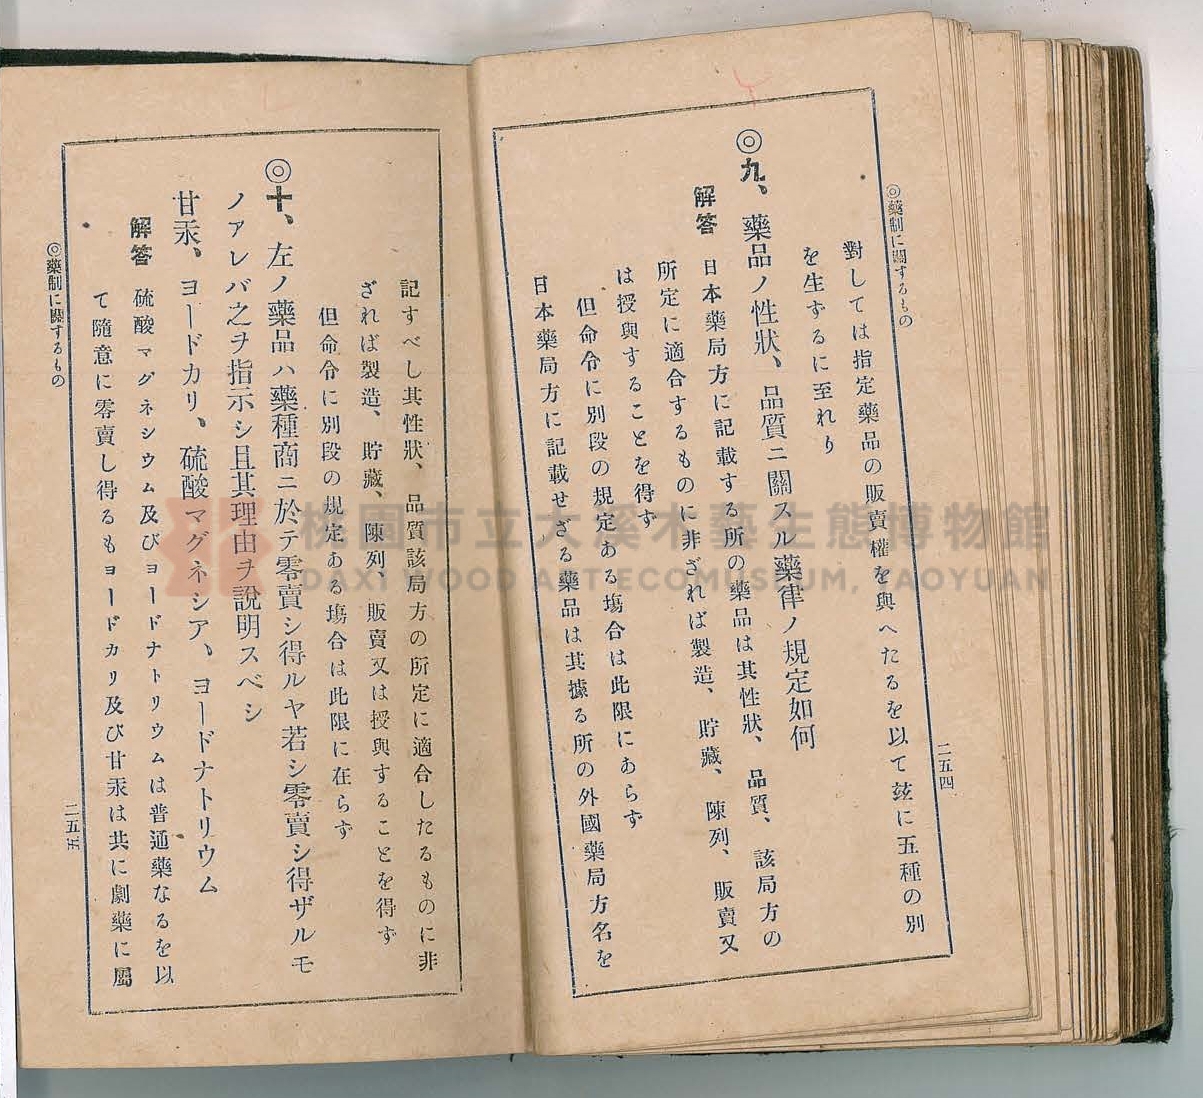 ◎藥制に關するもの
二五四
對しては指定藥品の販賣權を與へたるを以て玆に五種の別
を生ずるに至れり
◎九、藥品ノ性狀、品質ニ關スル藥律ノ規定如何
解答 日本藥局方に記載する所の藥品は其性狀、品質、該局方の
所定に適合するものに非ざれば製造、貯藏、陳列、販賣又
は授與することを得ず
但命令に別段の規定ある塲合は此限にあらず
日本藥局方に記載せざる藥品は其據る所の外國藥局方名を
記すべし其性狀、品質該局方の所定に適合したるものに非
ざれば製造、貯藏、陳列、販賣又は授與することを得ず
但命令に別段の規定ある塲合は此限に在らず
◎十、左ノ藥品ハ藥種商ニ於テ零賣シ得ルヤ若シ零賣シ得ザルモ
ノアレバ之ヲ指示シ且其理由ヲ說明スベシ
甘汞、ヨードカリ、硫酸マグネシア、ヨードナトリウム
解答 硫酸マグネシウム及びヨードナトリウムは普通藥なるを以
て隨意に零賣し得るもヨードカリ及び甘汞は共に劇藥に屬
◎藥制に關するもの
二五五
桃園市立大溪木藝生態博物館
DAXI WOOD ART ECOMUSEUM, TAOYUAN